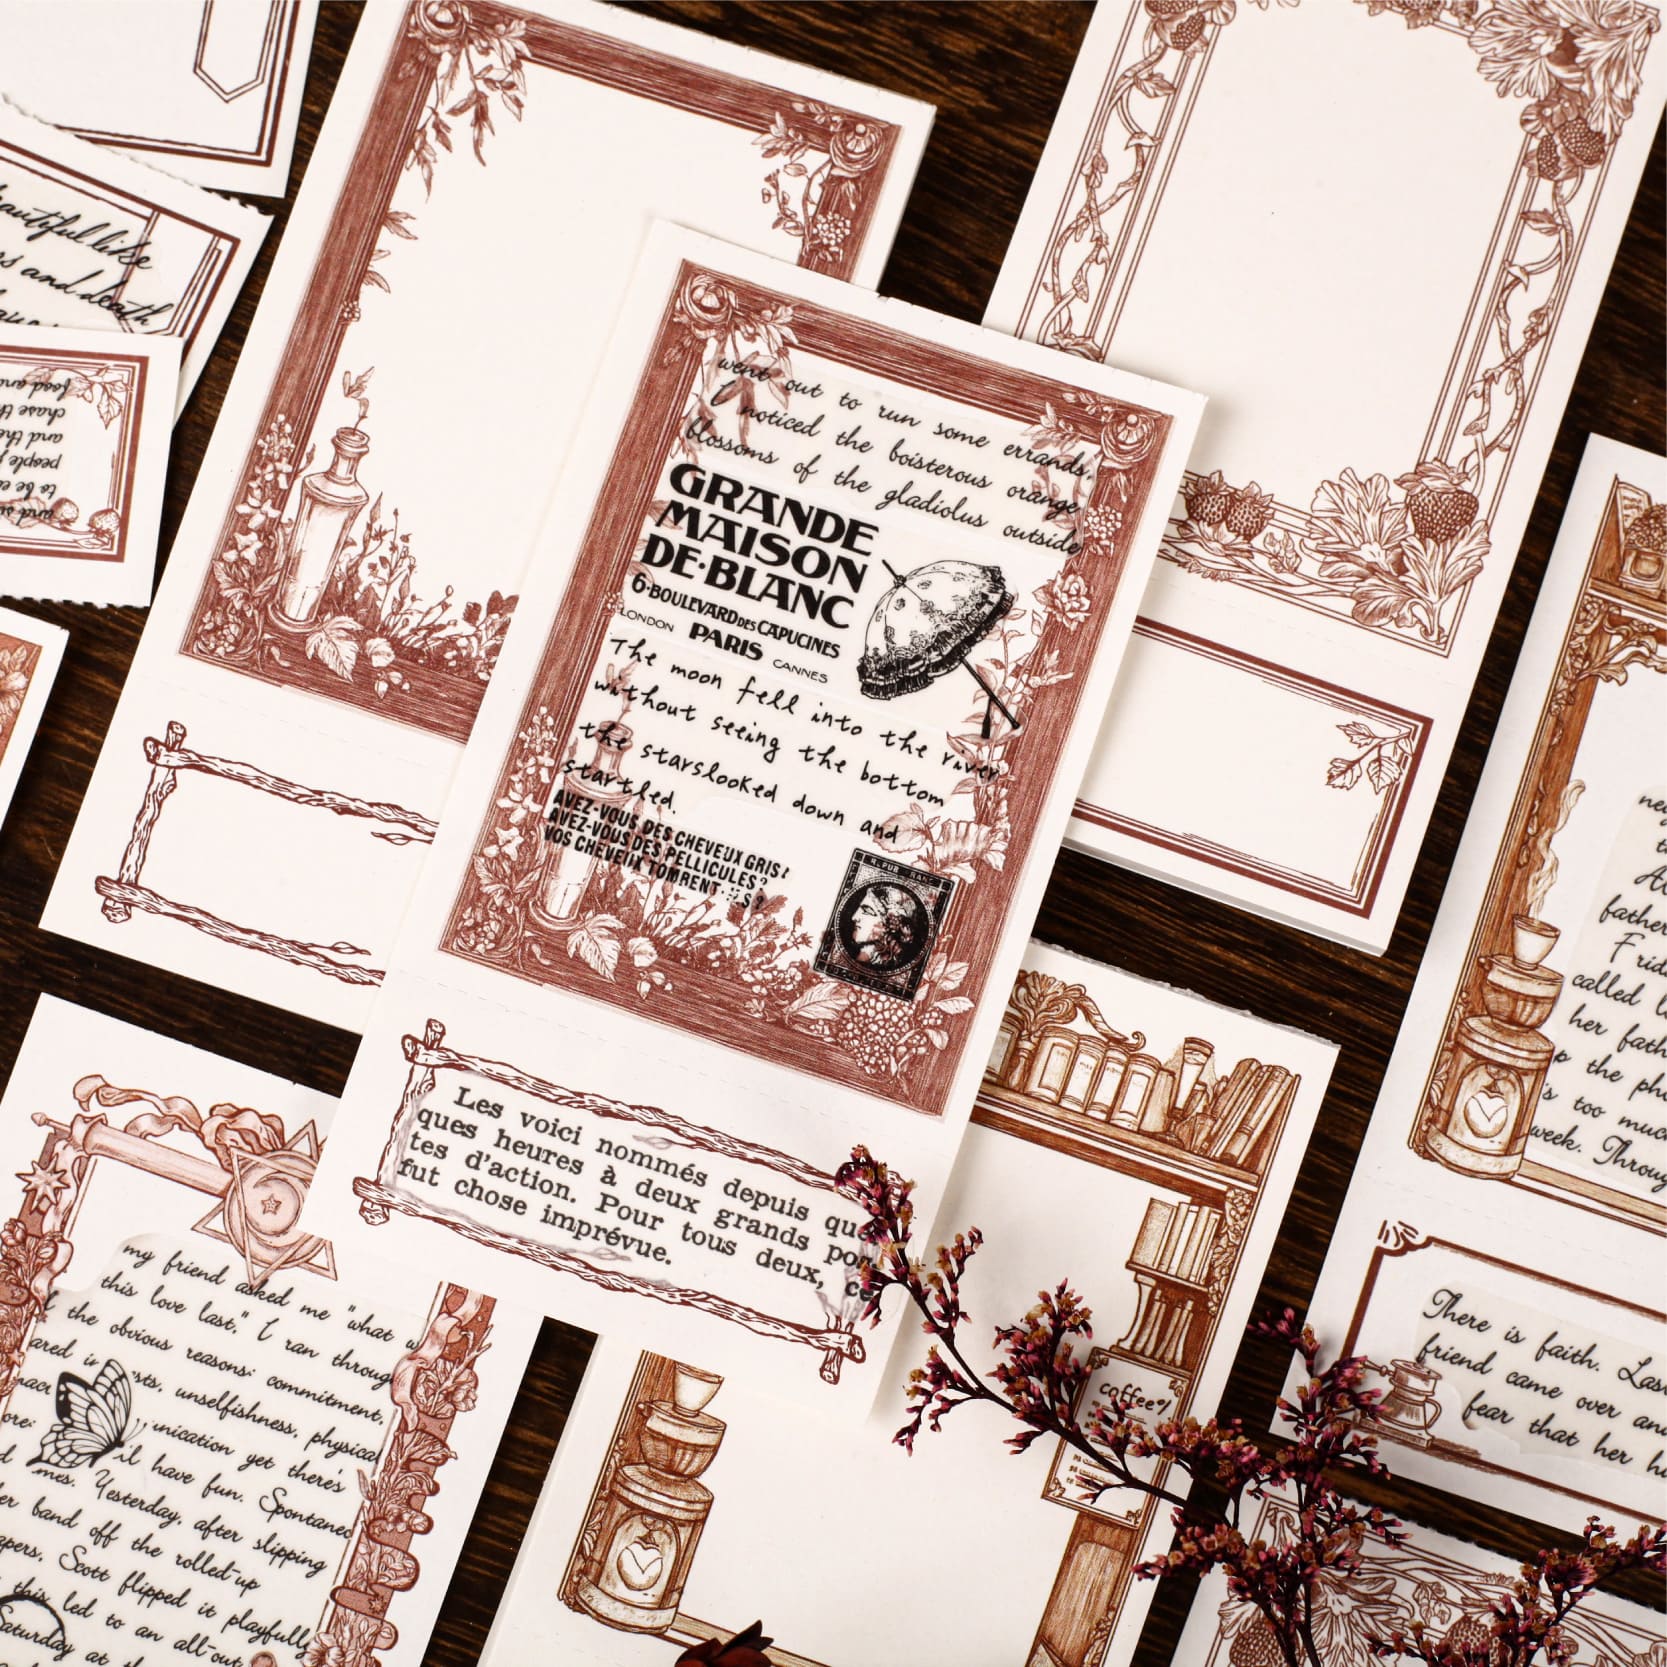 went out to run some errands,
I noticed the boisterous orange
blossoms of the gladiolus outside
GRANDE
MAISON
DE·BLANC
6·BOULEVARD DES CAPUCINES
LONDON PARIS CANNES
The moon fell into the river
without seeing the bottom
the starslooked down and
startled.
AVEZ-VOUS DES CHEVEUX GRIS?
AVEZ-VOUS DES PELLICULES?
VOS CHEVEUX TOMRENT-
Les voici nommés depuis quel
ques heures à deux grands pos
tes d'action. Pour tous deux, ce
fut chose imprévue.
beautiful like
and death
food and
chase th
and the
people
to be e
and su
my friend asked me "what w
this love last," I ran throug
the obvious reasons: commitment,
ared in sts, unselfishness, physical
ore: unication yet there's
il have fun. Spontaneo
mes. Yesterday, after slipping
er band off the rolled-up
apers, Scott flipped it playfully
this led to an all-out
Saturday at the
coffee
father
Frid
called
her fath
the ph
's too muc
week. Throug
There is faith. Las
friend came over and
fear that her h